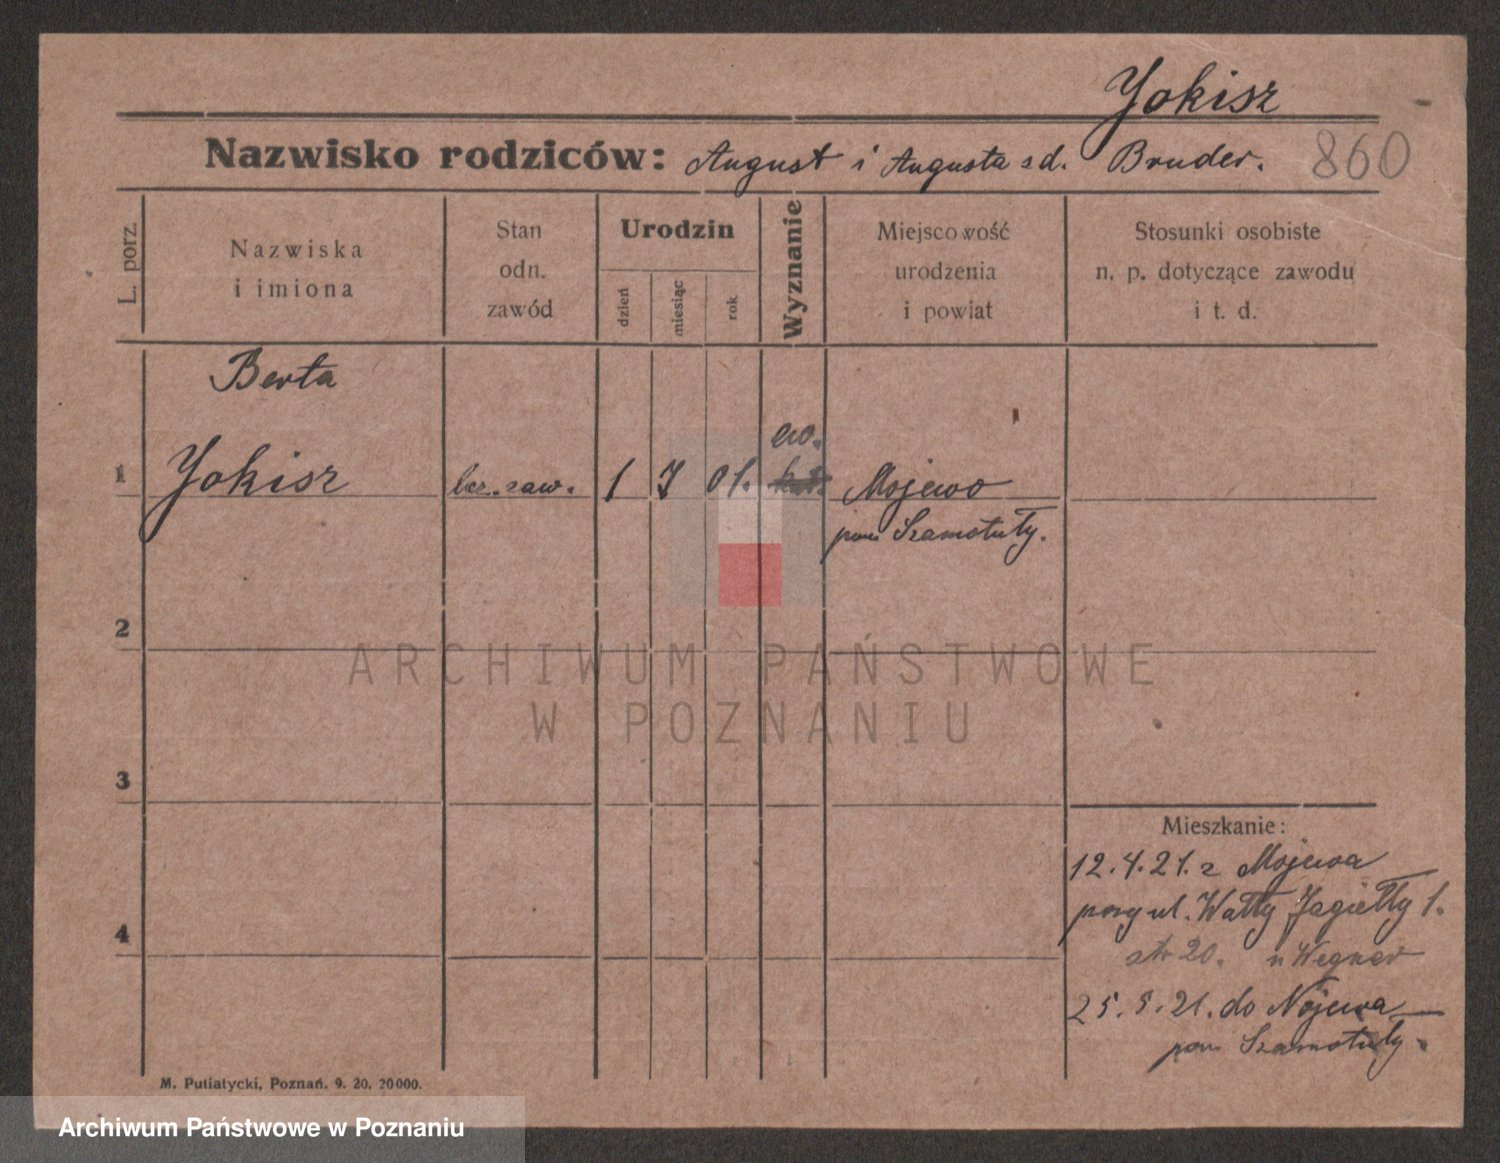 Yokisz
Nazwisko rodziców: August i Augusta z d. Bruder. 860
L. porz.
Nazwiska
i imiona
Stan
odn.
zawód
Urodzin
dzień
miesiąc
rok
Wyznanie
Miejscowość
urodzenia
i powiat
Stosunki osobiste
n. p. dotyczące zawodu
i t. d.
Berta
ew.
1 Yokisz bez. zaw. 1 7 01. kat. Mojewo
pow Szamotuły.
2
3
4
ARCHIWUM PAŃSTWOWE
W POZNANIU
Mieszkanie:
12.4.21. z Mojewa
przy ul. Wały Jagiełły 1.
str 20. u Wegner
25.5.21. do Nojewa
pow Szamotuły.
M. Putiatycki, Poznań. 9. 20. 20000.
Archiwum Państwowe w Poznaniu